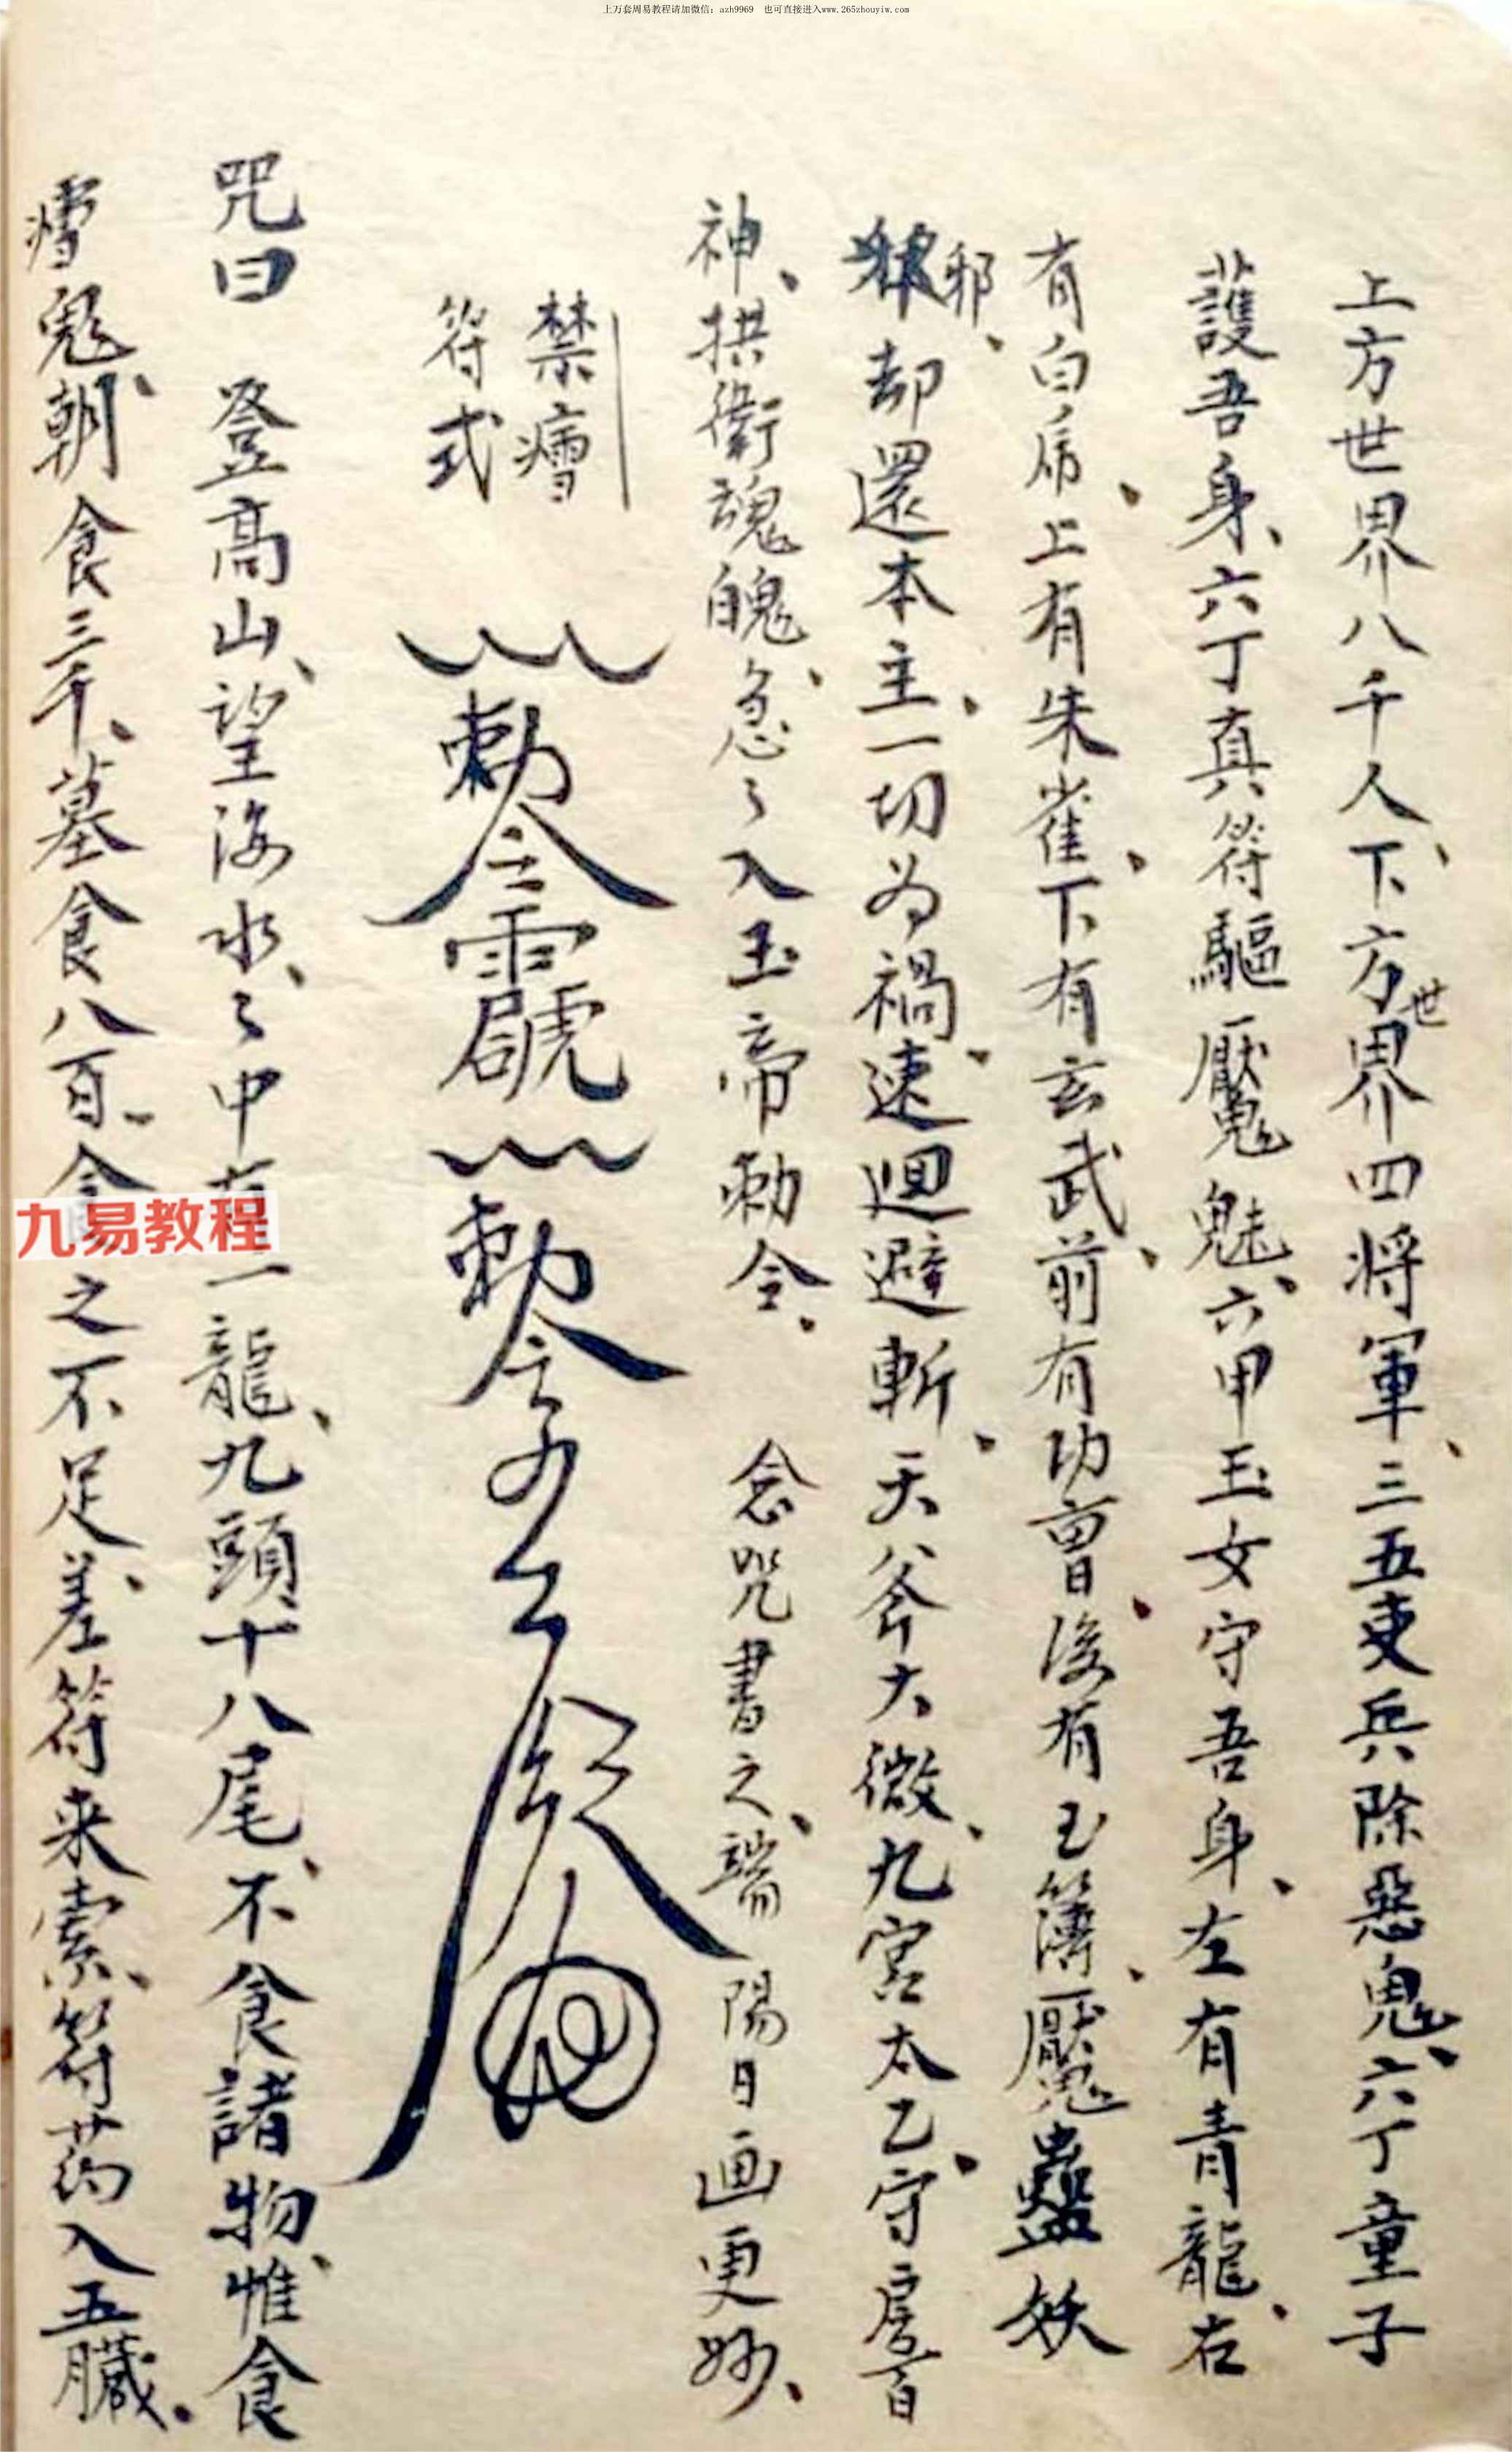 上万套周易教程请加微信：azh9969 也可直接进入www.265zhouyiw.com
上方世界八千人、下方世界四将軍、三五吏兵除惡鬼、六丁童子
護吾身、六丁真符驅魘魅、六甲玉女守吾身、左有青龍、右
有白虎、上有朱雀、下有玄武、前有功曹、後有玉簿、魘蠱妖
邪、却還本主、一切为禍、速迴避斬、天斧大微、九宮太乙、守
神、拱衛魂魄、急〻入玉帝勅令、 念咒書之、端陽日画更妙、
禁瘧
符式
勅令
勅令
咒曰 登高山、望海水、〻中有一龍、九頭十八尾、不食諸物、惟食
瘧鬼、朝食三千、墓食八百、食之不足、差符来索、符药入五臟、
九易教程